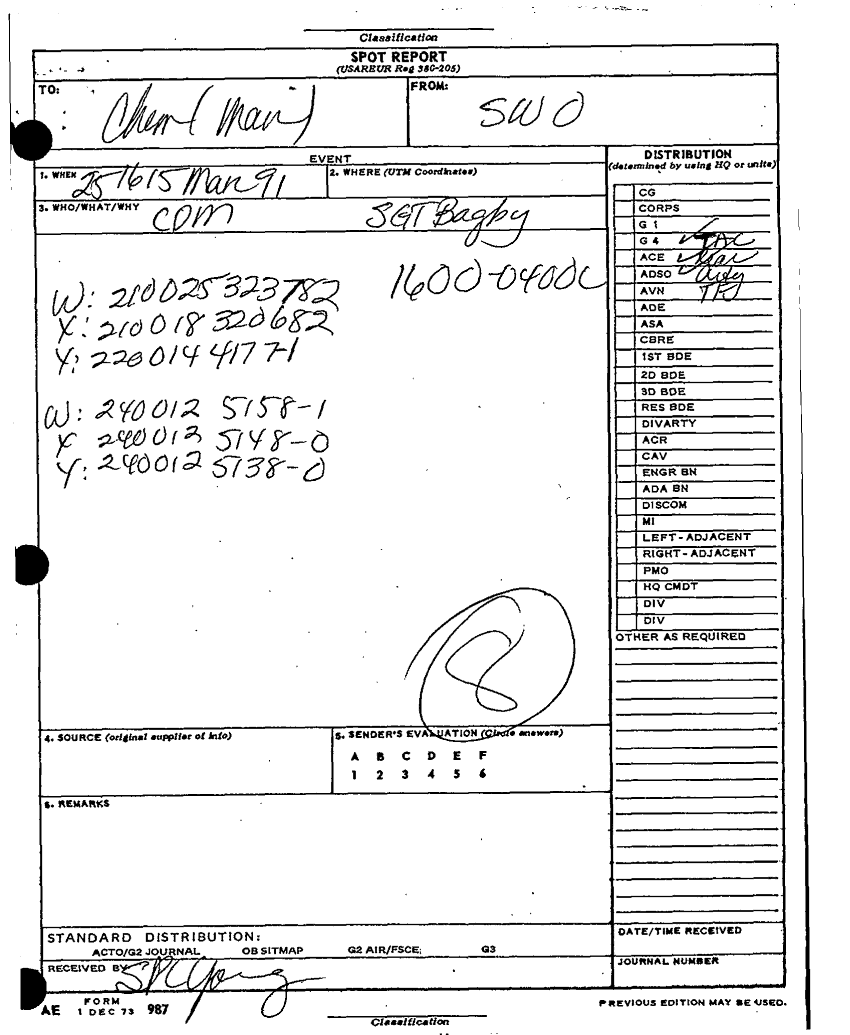 Classification
SPOT REPORT
(USAREUR Reg 380-205)
TO: Chem (Main)
FROM: SWO
EVENT
1. WHEN 251615 Mar 91
2. WHERE (UTM Coordinates)
3. WHO/WHAT/WHY CDM SGT Bagby
1600-0400L
W: 210025323782
X: 210018320682
Y: 220014 4177-1
W: 240012 5158-1
X 240012 5148-0
Y: 240012 5138-0
8
4. SOURCE (original supplier of info)
5. SENDER'S EVALUATION (Circle answers)
A B C D E F
1 2 3 4 5 6
6. REMARKS
STANDARD DISTRIBUTION:
ACTO/G2 JOURNAL OB SITMAP G2 AIR/FSCE; G3
RECEIVED BY SPC Young
AE FORM 1 DEC 73 987
DISTRIBUTION
(determined by using HQ or units)
CG
CORPS
G 1
G 4 TAC
ACE
ADSO
AVN
ADE
ASA
CBRE
1ST BDE
2D BDE
3D BDE
RES BDE
DIVARTY
ACR
CAV
ENGR BN
ADA BN
DISCOM
MI
LEFT-ADJACENT
RIGHT-ADJACENT
PMO
HQ CMDT
DIV
DIV
OTHER AS REQUIRED
DATE/TIME RECEIVED
JOURNAL NUMBER
PREVIOUS EDITION MAY BE USED.
Classification